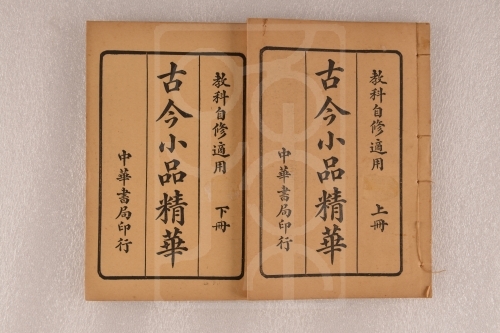 教科自修適用 上冊
古今小品精華
中華書局印行
教科自修適用 下冊
古今小品精華
中華書局印行